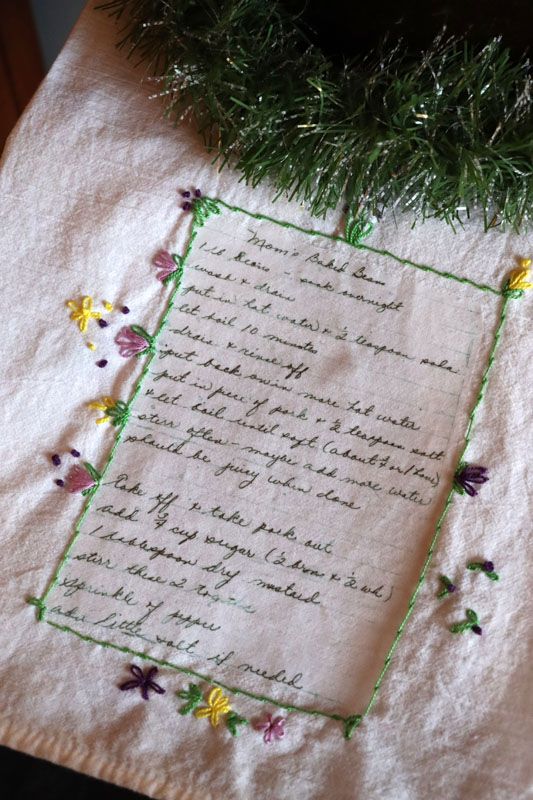 Mom's Baked Bean
1 lb Beans - soak overnight
wash & drain
put in hot water & ½ teaspoon soda
let boil 10 minutes
drain & rinse off
put back on in more hot water
put in piece of pork & ½ teaspoon salt
& let boil until soft (about ¾ or 1 hour)
stirr often - maybe add more water
should be juicy when done
Take off & take pork out
add ¾ cup sugar (½ bron & ½ wh)
1 tablespoon dry mustard
stirr these 2 together
sprinkle of pepper
little salt if needed